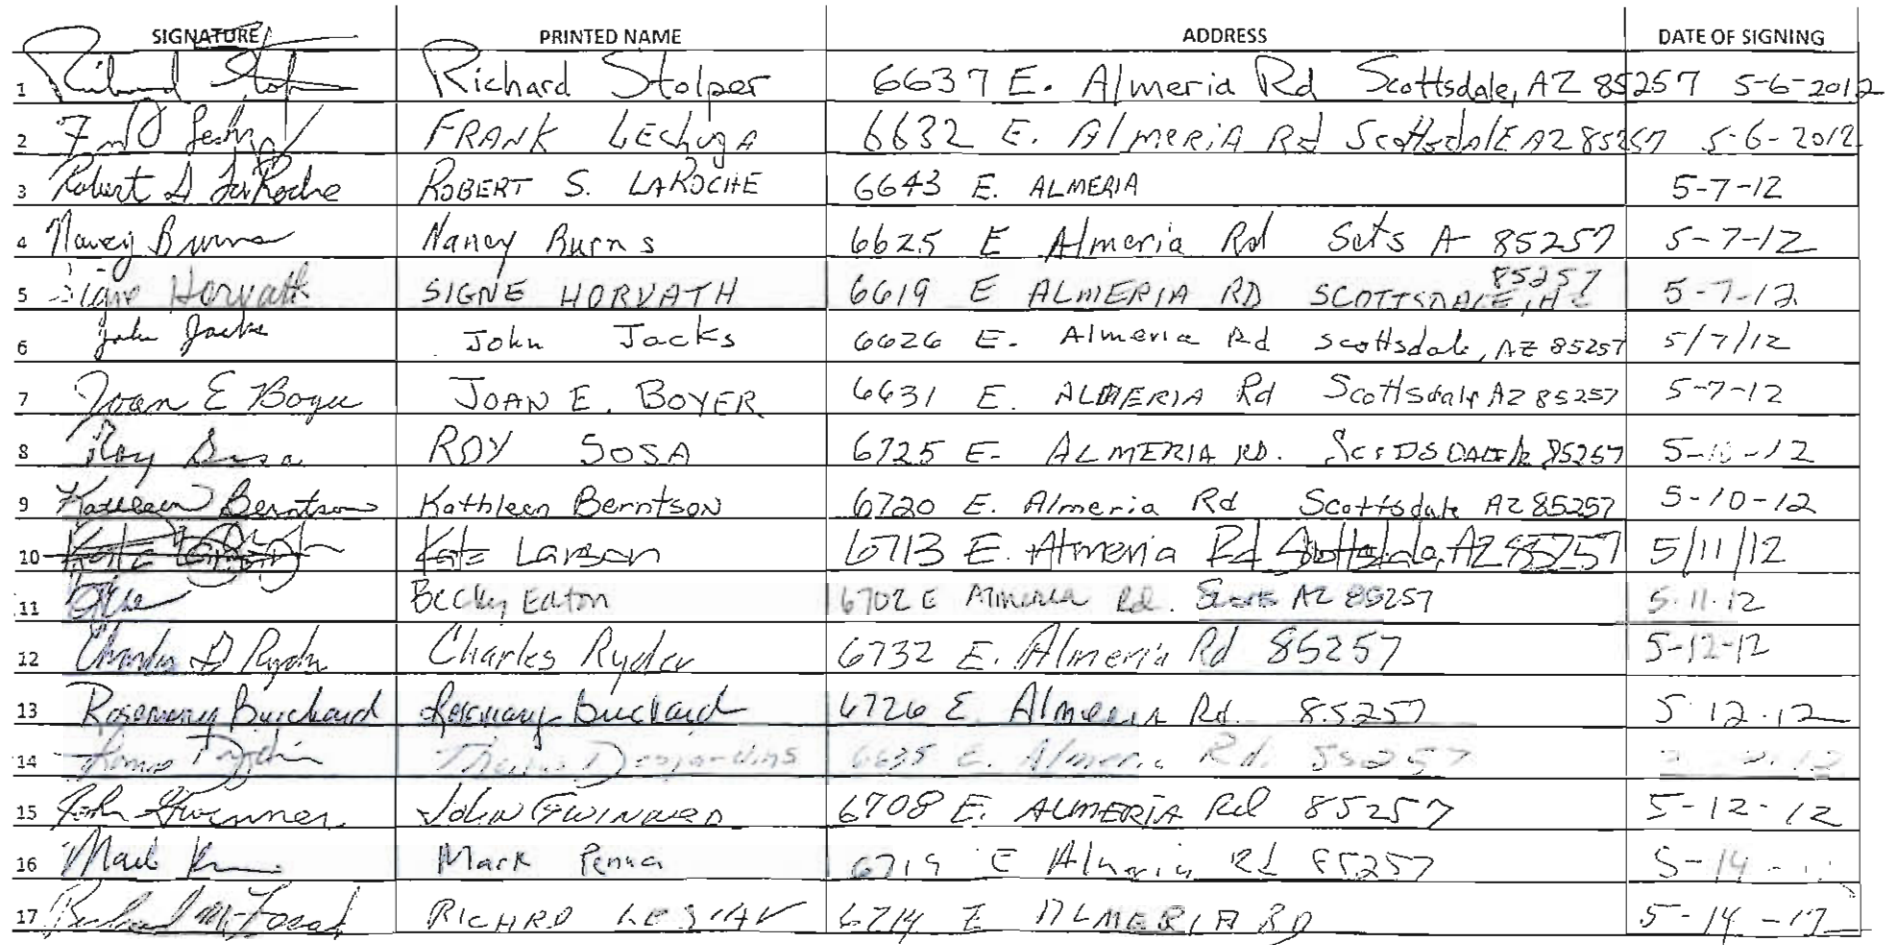 SIGNATURE PRINTED NAME ADDRESS DATE OF SIGNING
1 Richard Stolper Richard Stolper 6637 E. Almeria Rd Scottsdale, AZ 85257 5-6-2012
2 FRANK LEChugA 6632 E. AlMERiA Rd ScottsdalE AZ 85257 5-6-2012
3 Robert S LaRoche ROBERT S. LAROCHE 6643 E. ALMERIA 5-7-12
4 Nancy Burns Nancy Burns 6625 E Almeria Rd A 85257 5-7-12
5 Signe Horvath SIGNE HORVATH 6619 E ALMERIA RD SCOTTSDALE, 85257 5-7-12
6 John Jacks John Jacks 6626 E. Almeria Rd scottsdale, AZ 85257 5/7/12
7 Joan E Boyer JOAN E. BOYER 6631 E. ALMERIA Rd Scottsdale AZ 85257 5-7-12
8 Roy Sosa ROY SOSA 6725 E. ALMERIA RD. 85257
9 Kathleen Berntson Kathleen Berntson 6720 E. Almeria Rd Scottsdale AZ 85257 5-10-12
10 Kate Larson 6713 E. Almeria Rd Scottsdale, AZ 85257 5/11/12
11 Becky Eaton 6702 E Almeria Rd. AZ 85257 5.11.12
12 Charles D Ryder Charles Ryder 6732 E. Almeria Rd 85257 5-12-12
13 Rosemary Burchard Rosemary 6726 E Almeria Rd. 85257 5.12.12
14 E. Almeria Rd. 85257
15 John John 6708 E. ALMERIA Rd 85257 5-12-12
16 Mark Mark Penna 6719 E Almeria Rd 85257 5-14
17 RICHRD 6714 E ALMERIA RD 5-14-12